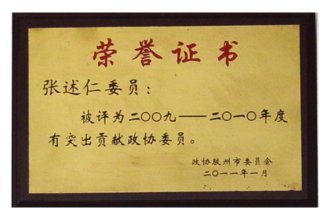 荣誉证书
张述仁委员：
被评为二〇〇九——二〇一〇年度
有突出贡献政协委员。
政协胶州市委员会
二〇一一年一月